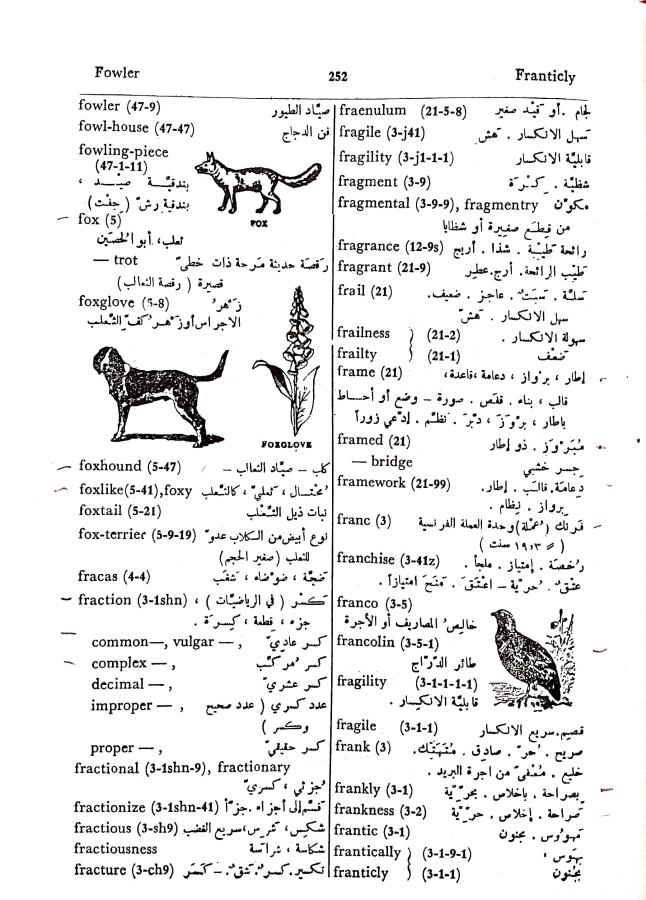 Fowler
252
Franticly
fowler (47-9) صيّاد الطيور
fowl-house (47-47) قن الدجاج
fowling-piece
(47-1-11) بندقيّـة صيْـد ،
بندقية رش ( جِفْت )
FOX
fox (5)
ثعلب، أبو الحُصَيْن
— trot رقصة حديثة مَرحة ذات خطىً
قصيرة ( رقصة الثعالب )
foxglove (5-8) زَهْرُ
الاجراس أو زَهْر كفّ الثّعلب
FOXGLOVE
foxhound (5-47) كلب – صيّاد الثعالب –
foxlike(5-41),foxy مُحتال ، ثعلبيّ ، كالثّعلب
foxtail (5-21) نبات ذيل الثّعْلب
fox-terrier (5-9-19) نوع أبيض من الكلاب عدوّ
للثعلب (صغير الحجم)
fracas (4-4) ضجّة ، ضوْضاء ، شغَب
fraction (3-1shn) تكسّر ( في الرياضيّات ) ،
جزء ، قطعة ، كِسْرَة .
common—, vulgar —, كسر عاديّ
complex — , كسر مُركّب
decimal — , كسر عشريّ
improper — , عدد كسري ( عدد صحيح
وكسر )
proper — , كسر حقيقيّ
fractional (3-1shn-9), fractionary
جُزئي ، كسريّ
fractionize (3-1shn-41) قسّم إلى أجزاء. جزّأ
fractious (3-sh9) شكيس، شرِس، سريع الغضب
fractiousness شكاسة ، شراسة
fracture (3-ch9) تكسير. كسر. شق. – كَسَر
fraenulum (21-5-8) لجام . أو قيْد صغير
fragile (3-j41) سهل الانكسار . هش
fragility (3-j1-1-1) قابليّة الانكسار
fragment (3-9) شظيّة . كِسْرَة
fragmental (3-9-9), fragmentry مكوّن
من قِطَع صغيرة أو شظايا
fragrance (12-9s) رائحة طيّبة . شذا . أريج
fragrant (21-9) طيّب الرائحة. أرج. عطِر
frail (21) سلّة . سبَت . عاجز . ضعيف.
سهل الانكسار . هَشّ
frailness } (21-2) سهولة الانكسار .
frailty } (21-1) ضَعْف
frame (21) إطار ، برْواز ، دعامة ، قاعدة،
قالب ، بناء . قفص . صورة – وضع أو أحاط
باطار ، بَرْوَز ، دبّر . نظّم . إدّعي زوراً
framed (21) مُبَرْوَز . ذو إطار
— bridge جسر خشبي
framework (21-99) دعامة. قالَب . إطار.
برواز . نظام .
franc (3) فرنك (عُمْلة) وحدة العملة الفرنسية
( = ١٩٥٣ سنت )
franchise (3-41z) رُخصة . إمتياز . ملجأ .
عتق . حُرّية – اعْتَق . مَنَح امتيازاً .
franco (3-5)
خالِص المصاريف أو الأجرة
francolin (3-5-1)
طائر الدّرّاج
fragility (3-1-1-1-1)
قابليّة الانكسار .
fragile (3-1-1) قصيم. سريع الانكسار
frank (3) صريح . حُرّ . صادق . مُتَهَتِّك.
خليع . مُعفىً من اجرة البريد .
frankly (3-1) بصراحة . باخلاص . بحرّية
frankness (3-2) صَراحة . إخلاص . حرّية
frantic (3-1) مَهْووس . مجنون
frantically } (3-1-9-1) بهَوَس ،
franticly } (3-1-1) بجنون